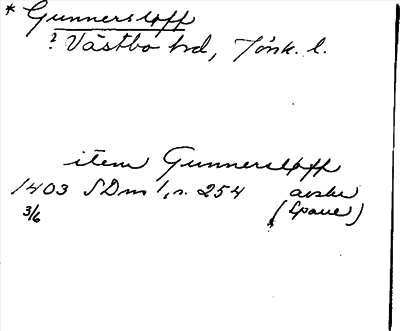 * Gunnersloff
? Västbo hd, Jönk. l.
item Gunnersloff
1403 SDm 1, s. 254 avskr
3/6 (Spaue)